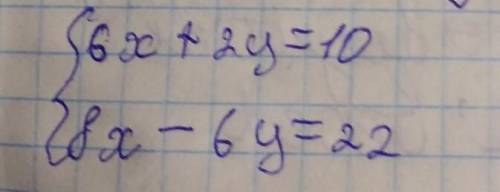 6x + 2y = 10
8x - 6y = 22